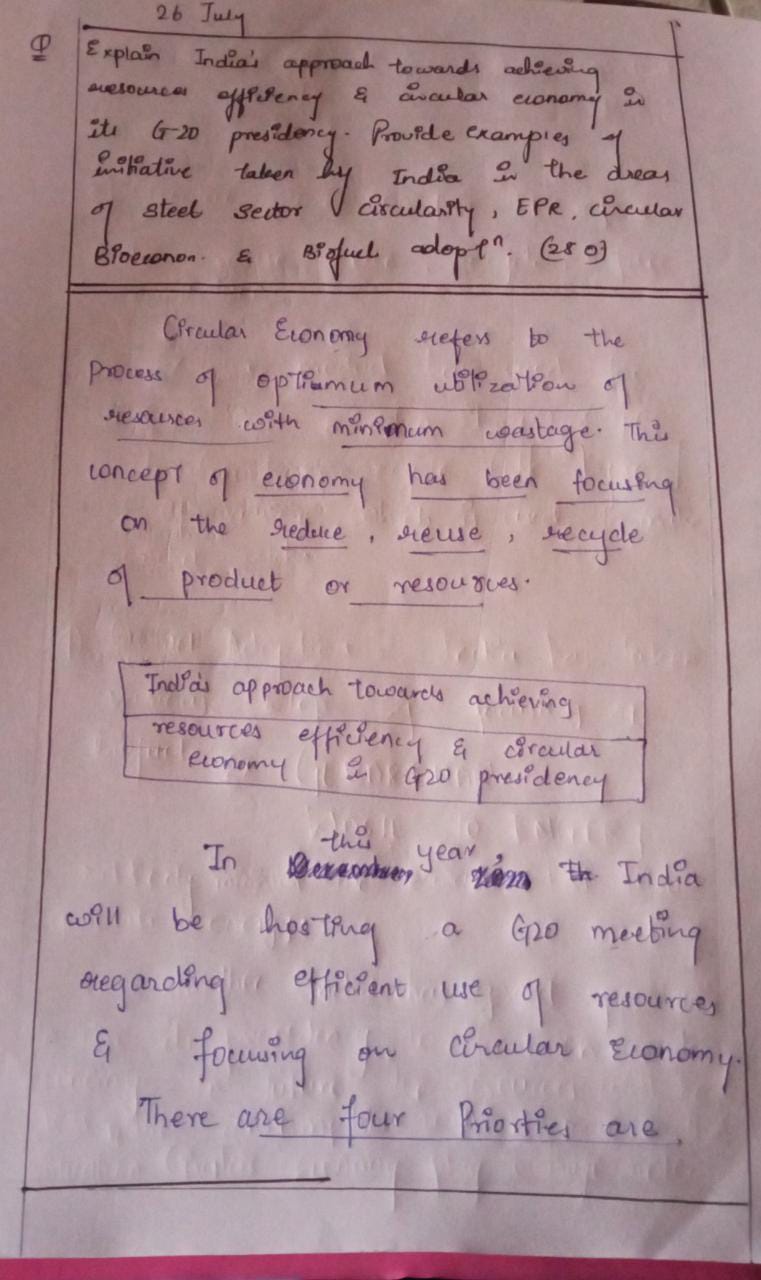 26 July
Q Explain India's approach towards achieving
resources efficiency & circular economy in
its G-20 presidency. Provide examples of
initiative taken by India in the areas
of steel sector circularity, EPR, circular
Bioeconon. & Biofuel adoptn. (250)
Circular Economy refers to the
process of optimum utilization of
resources with minimum wastage. This
concept of economy has been focusing
on the reduce, reuse, recycle
of product or resources.
India's approach towards achieving
resources efficiency & circular
economy in G20 presidency
In this year, India
will be hosting a G20 meeting
regarding efficient use of resources
& focusing on circular Economy.
There are four Priorties are,